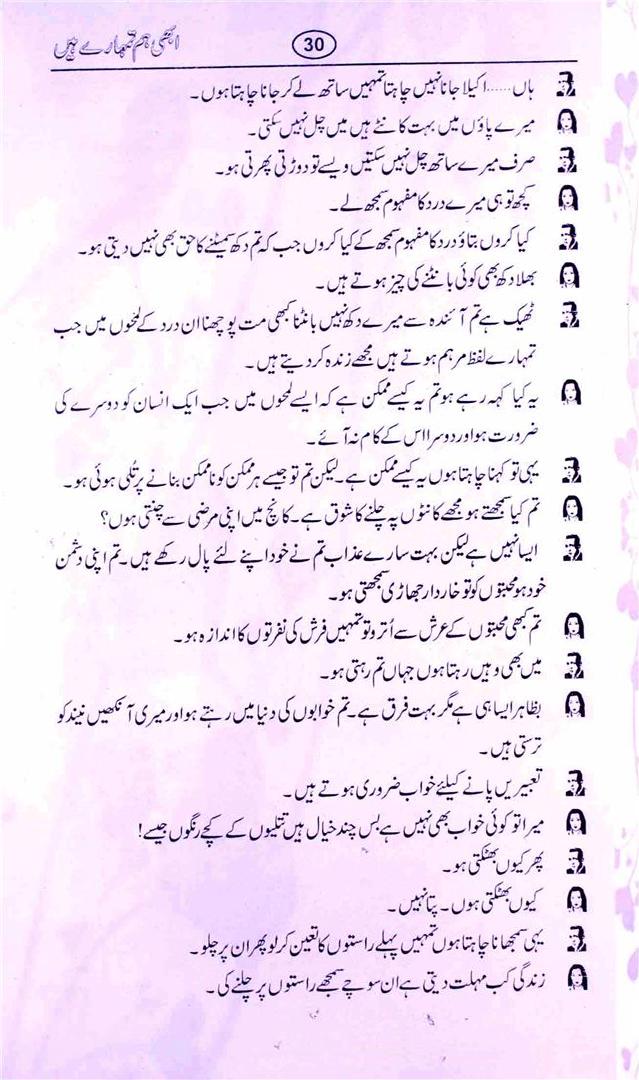 ابھی ہم تمہارے ہیں
30
ہاں......اکیلا جانا نہیں چاہتا تمہیں ساتھ لے کر جانا چاہتا ہوں۔
میرے پاؤں میں بہت کانٹے ہیں میں چل نہیں سکتی۔
صرف میرے ساتھ چل نہیں سکتیں ویسے تو دوڑتی پھرتی ہو۔
کچھ تو ہی میرے درد کا مفہوم سمجھ لے۔
کیا کروں بتاؤ درد کا مفہوم سمجھ کے کیا کروں جب کہ تم دکھ سمیٹنے کا حق بھی نہیں دیتی ہو۔
بھلا دکھ بھی کوئی بانٹنے کی چیز ہوتے ہیں۔
ٹھیک ہے تم آئندہ سے میرے دکھ نہیں بانٹنا کبھی مت پوچھنا ان درد کے لمحوں میں جب
تمہارے لفظ مرہم ہوتے ہیں مجھے زندہ کر دیتے ہیں۔
یہ کیا کہہ رہے ہو تم یہ کیسے ممکن ہے کہ ایسے لمحوں میں جب ایک انسان کو دوسرے کی
ضرورت ہو اور دوسرا اس کے کام نہ آئے۔
یہی تو کہنا چاہتا ہوں یہ کیسے ممکن ہے۔ لیکن تم تو جیسے ہر ممکن کو ناممکن بنانے پر تُلی ہوئی ہو۔
تم کیا سمجھتے ہو مجھے کانٹوں پہ چلنے کا شوق ہے۔ کانچ میں اپنی مرضی سے چنتی ہوں؟
ایسا نہیں ہے لیکن بہت سارے عذاب تم نے خود اپنے لئے پال رکھے ہیں۔ تم اپنی دشمن
خود ہو محبتوں کو تو خاردار جھاڑی سمجھتی ہو۔
تم کبھی محبتوں کے عرش سے اُترو تو تمہیں فرش کی نفرتوں کا اندازہ ہو۔
میں بھی وہیں رہتا ہوں جہاں تم رہتی ہو۔
بظاہر ایسا ہی ہے مگر بہت فرق ہے۔ تم خوابوں کی دنیا میں رہتے ہو اور میری آنکھیں نیند کو
ترستی ہیں۔
تعبیریں پانے کیلئے خواب ضروری ہوتے ہیں۔
میرا تو کوئی خواب بھی نہیں ہے بس چند خیال ہیں تتلیوں کے کچے رنگوں جیسے!
پھر کیوں بھٹکتی ہو۔
کیوں بھٹکتی ہوں۔ پتا نہیں۔
یہی سمجھانا چاہتا ہوں تمہیں پہلے راستوں کا تعین کر لو پھر ان پر چلو۔
زندگی کب مہلت دیتی ہے ان سوچے سمجھے راستوں پر چلنے کی۔